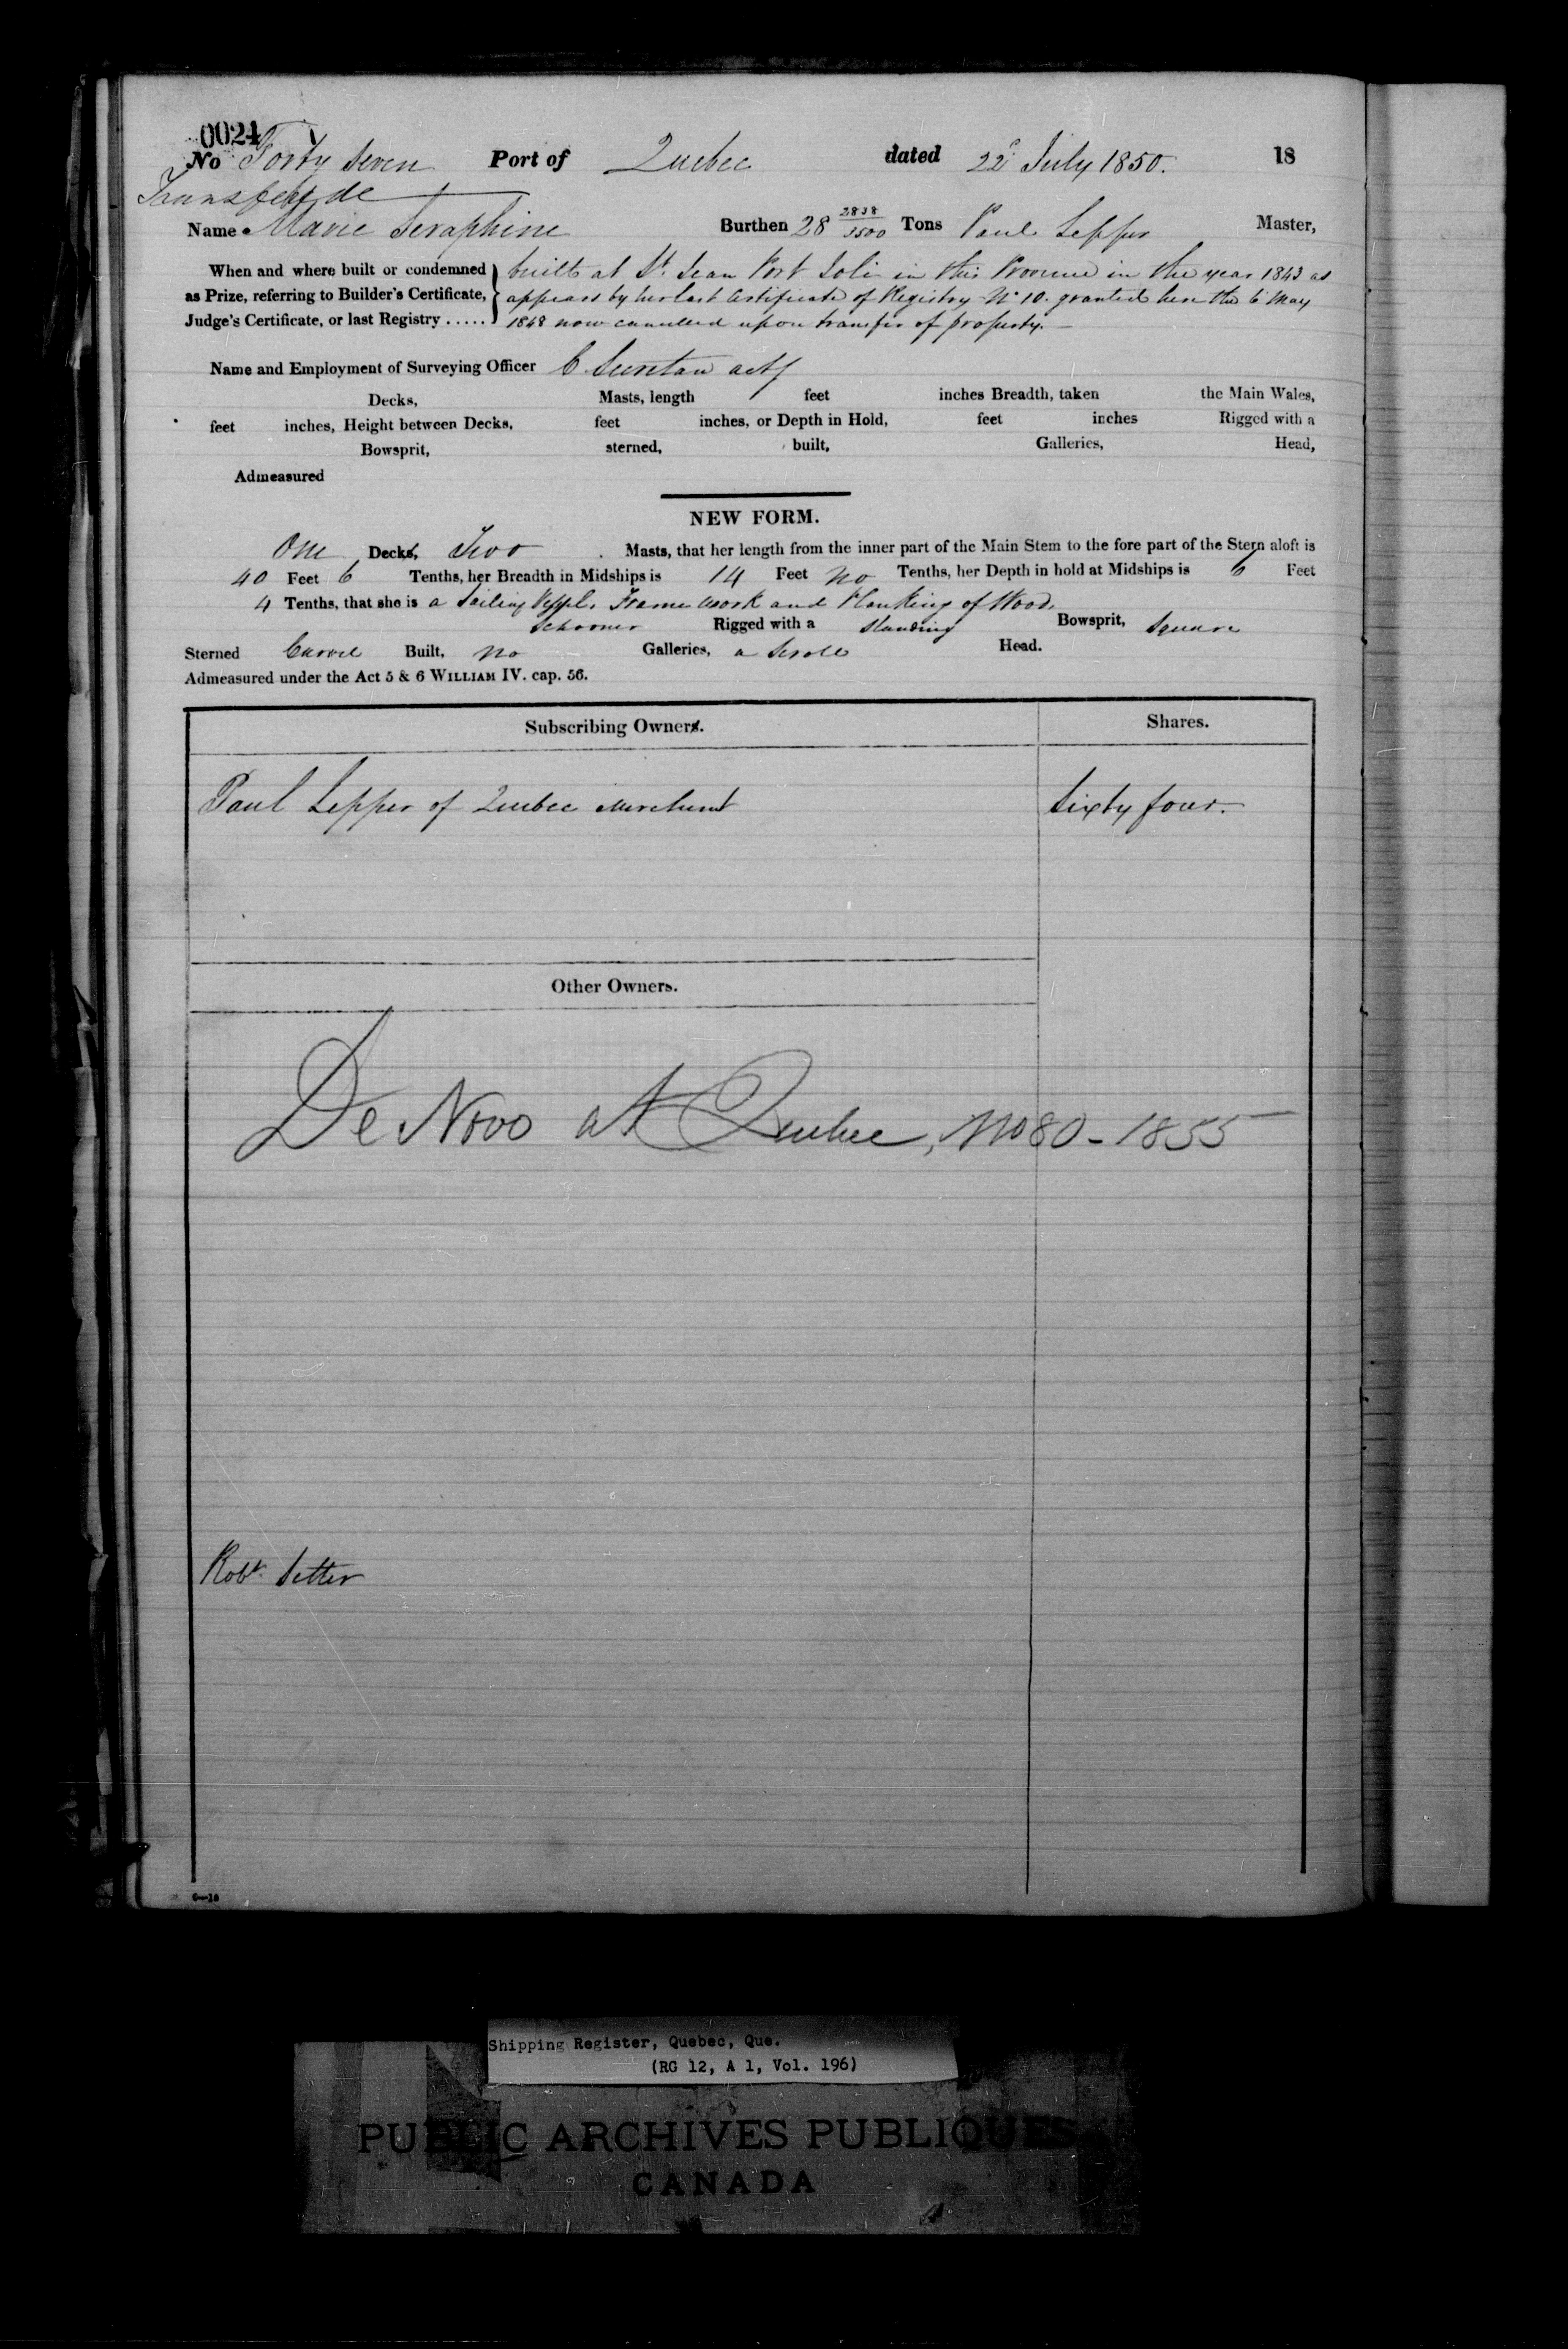 0024
No Forty Seven Port of Quebec dated 22d July 1850. 18
Transfer de
Name Marie Seraphine Burthen 28 2838/3500 Tons Paul Lepper Master,
When and where built or condemned built at St. Jean Port Joli in this Province in the year 1843 as
as Prize, referring to Builder's Certificate, appears by her last Certificate of Registry No 10. granted here the 6 May
Judge's Certificate, or last Registry ..... 1848 now cancelled upon transfer of property.
Name and Employment of Surveying Officer C
Decks, Masts, length feet inches Breadth, taken the Main Wales,
feet inches, Height between Decks, feet inches, or Depth in Hold, feet inches Rigged with a
Bowsprit, sterned, built, Galleries, Head,
Admeasured
NEW FORM.
One Decks, Two Masts, that her length from the inner part of the Main Stem to the fore part of the Stern aloft is
40 Feet 6 Tenths, her Breadth in Midships is 14 Feet no Tenths, her Depth in hold at Midships is 6 Feet
4 Tenths, that she is a Sailing Vessel, Frame work and Planking of Wood,
Schooner Rigged with a Standing Bowsprit, Square
Sterned Carvel Built, no Galleries, a Scroll Head.
Admeasured under the Act 5 & 6 WILLIAM IV. cap. 56.
Subscribing Owners. Shares.
Paul Lepper of Quebec Merchant Sixty four.
Other Owners.
De Novo at Quebec, No 80 - 1855
Robt. Setter
6—18
Shipping Register, Quebec, Que.
(RG 12, A 1, Vol. 196)
PUBLIC ARCHIVES PUBLIQUES
CANADA